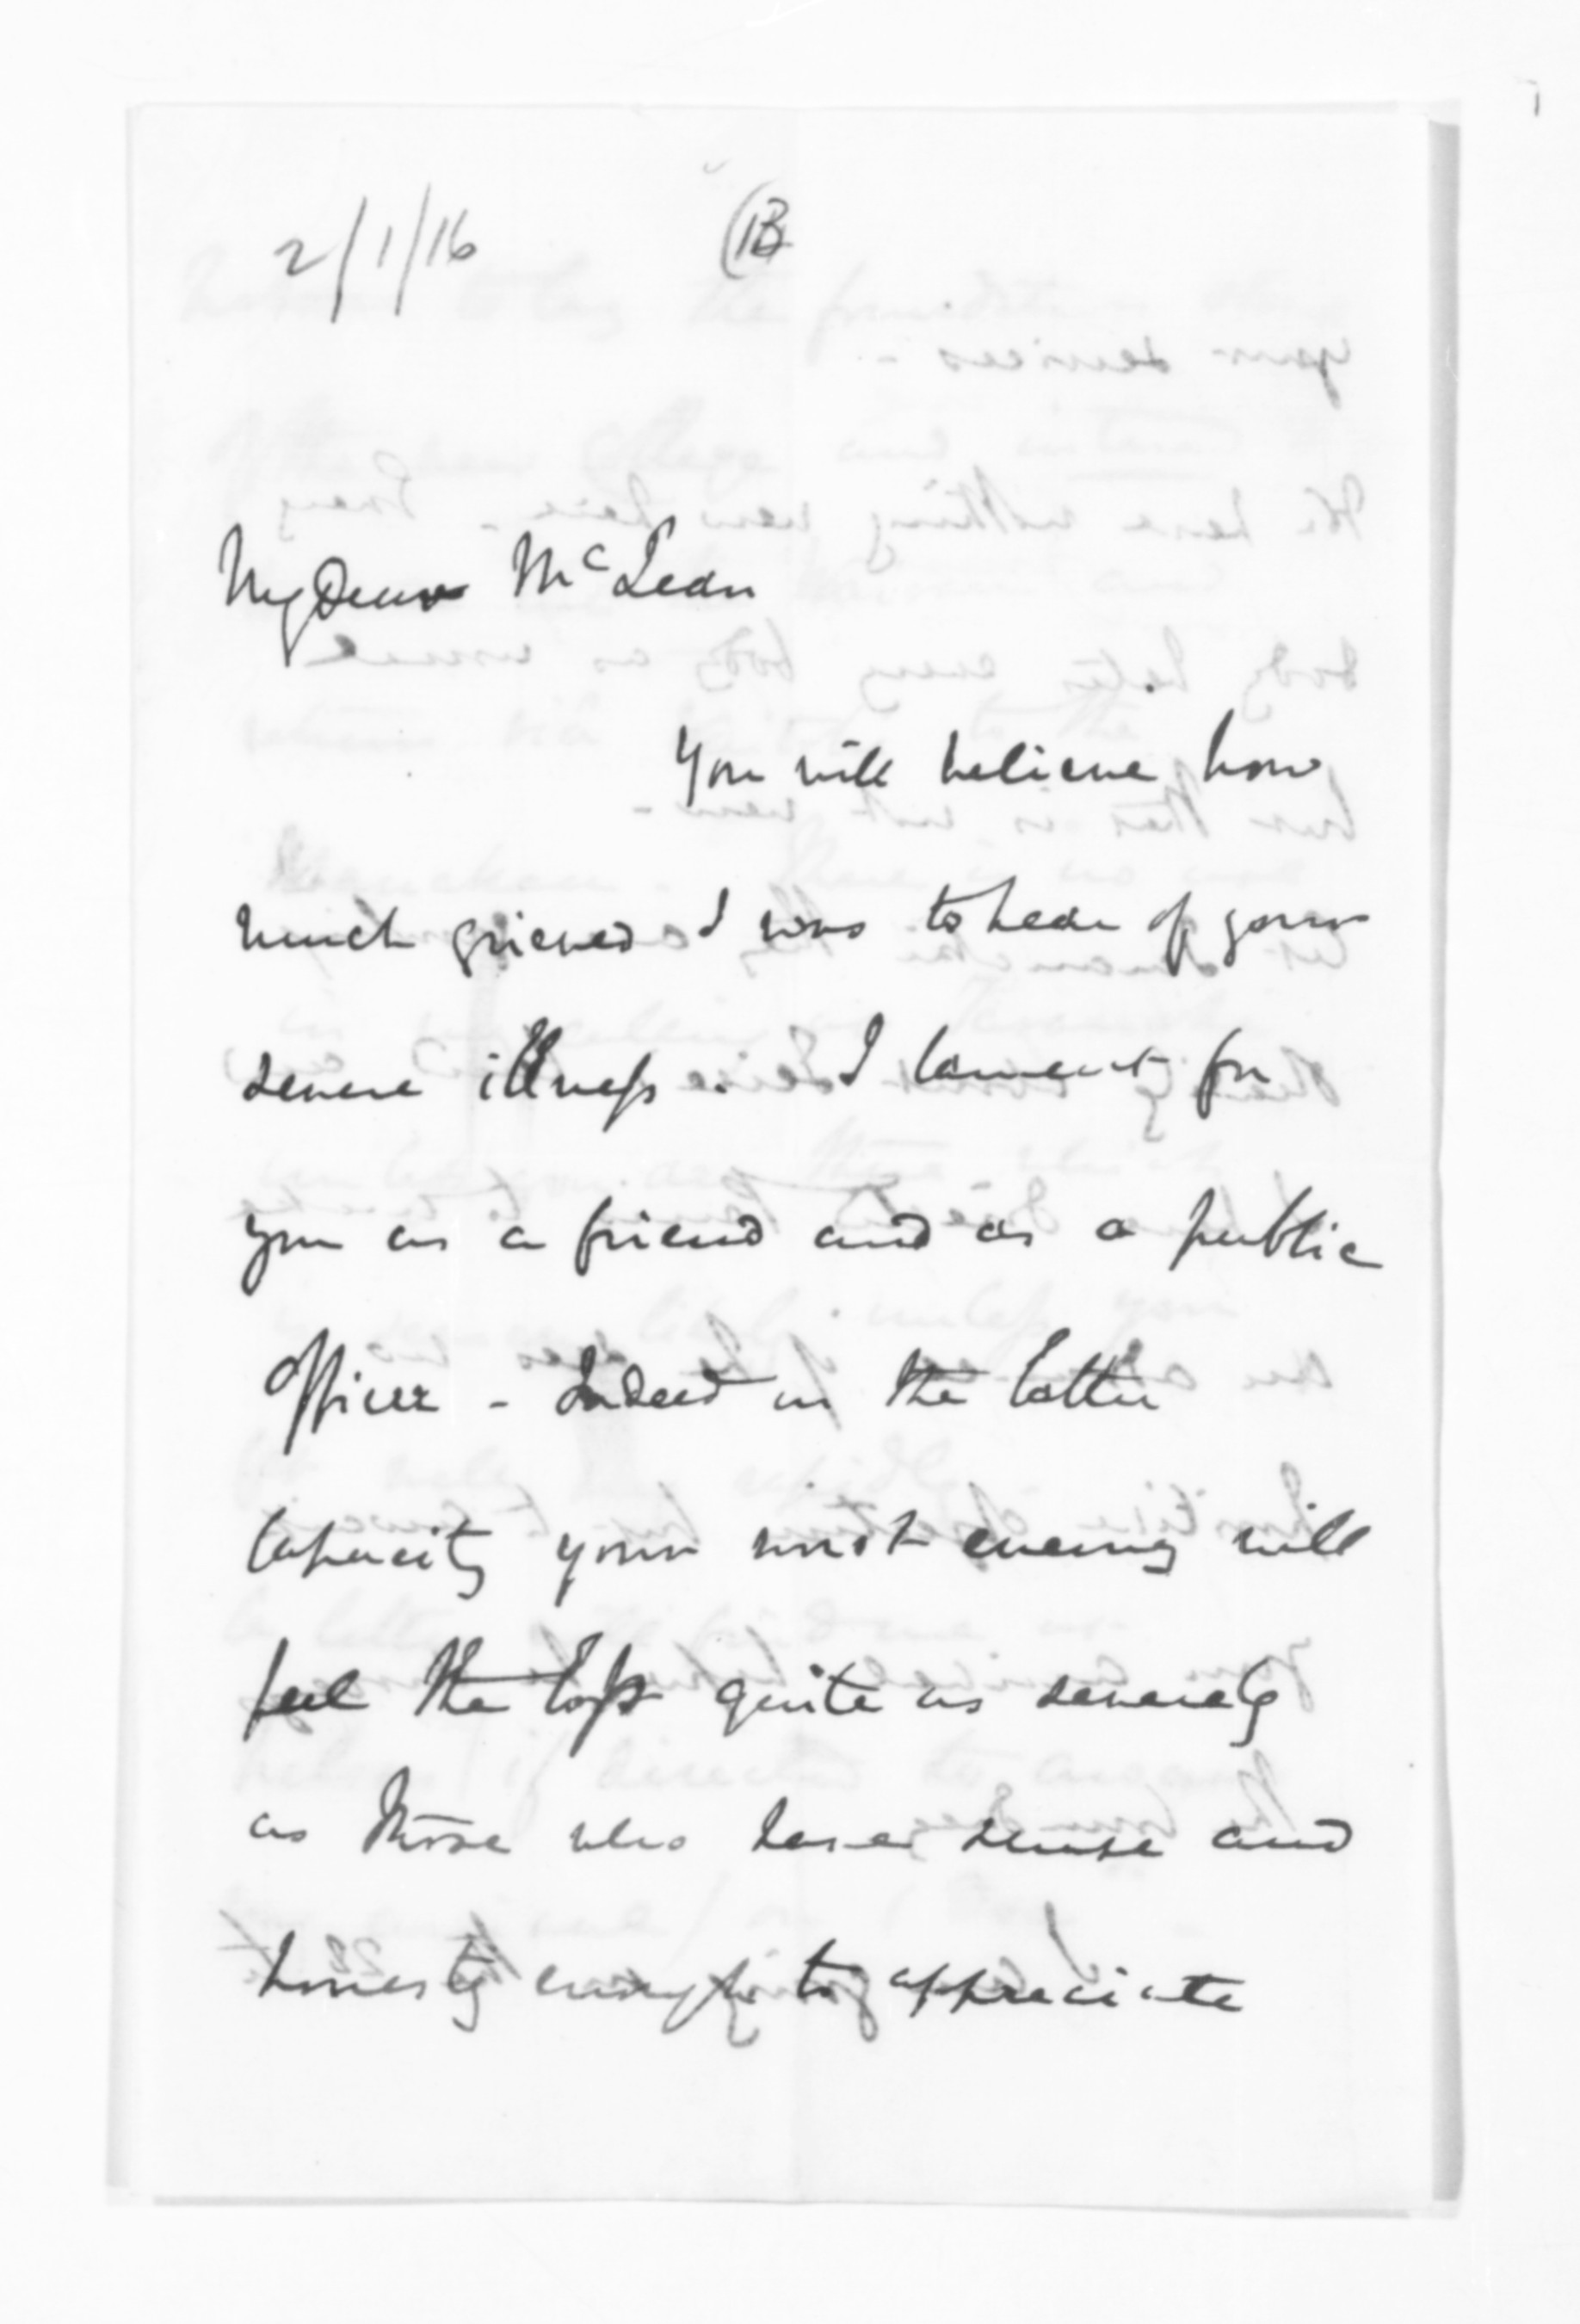 2/1/16
My Dear McLean
You will believe how
much grieved I was to hear of your
severe illness. I lament for
you as a friend and as a public
Officer - Indeed in the latter
capacity your worst enemy will
feel the loss quite as severely
as those who have sense and
honesty enough to appreciate